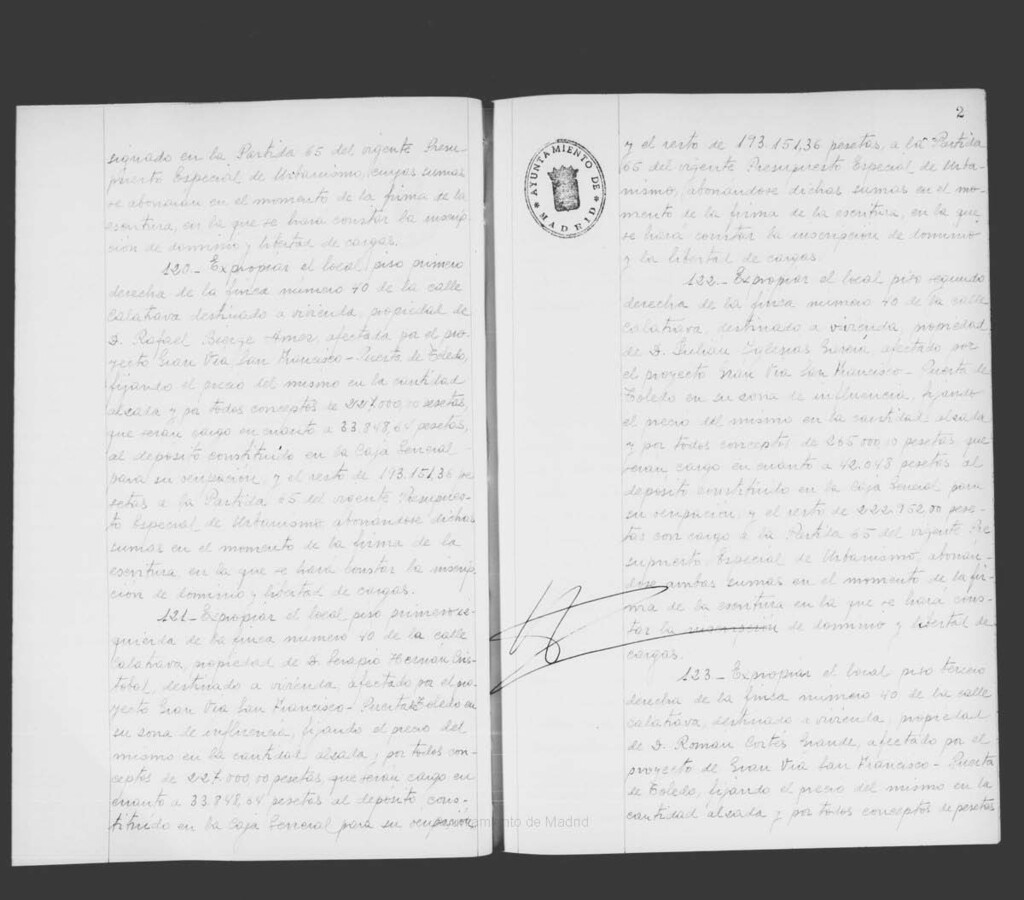 signado en la Partida 65 del vigente Presu-
puesto Especial de Urbanismo, cuyas sumas
se abonarán en el momento de la firma de la
escritura, en la que se hará constar la inscrip-
ción de dominio y libertad de cargas.
120.- Expropiar el local piso primero
derecha de la finca número 40 de la calle
Calatrava destinado a vivienda, propiedad de
D. Rafael Bierge Amer, afectada por el pro-
yecto Gran Vía San Francisco - Puerta de Toledo,
fijando el precio del mismo en la cantidad
alzada y por todos conceptos de 227.000,00 pesetas,
que serán cargo en cuanto a 33.848,64 pesetas,
al depósito constituido en la Caja General
para su ocupación, y el resto de 193.151,36 pe
setas a la Partida 65 del vigente Presupues-
to Especial de Urbanismo abonándose dichas
sumas en el momento de la firma de la
escritura, en la que se hará constar la inscrip-
ción de dominio y libertad de cargas.
121.- Expropiar el local piso primero iz-
quierda de la finca número 40 de la calle
Calatrava, propiedad de D. Serapio Hernán Cris-
tobal, destinado a vivienda, afectado por el pro-
yecto Gran Vía San Francisco - Puerta Toledo en
su zona de influencia, fijando el precio del
mismo en la cantidad alzada, por todos con-
ceptos de 227.000,00 pesetas, que serán cargo en
cuanto a 33.848,64 pesetas al depósito cons-
tituido en la Caja General para su ocupación
Ayuntamiento de Madrid
2
AYUNTAMIENTO DE MADRID
y el resto de 193.151,36 pesetas, a la Partida
65 del vigente Presupuesto Especial de Urba-
nismo, abonándose dichas sumas en el mo-
mento de la firma de la escritura, en la que
se hará constar la inscripción de dominio
y la libertad de cargas.
122.- Expropiar el local piso segundo
derecha de la finca número 40 de la calle
Calatrava, destinado a vivienda, propiedad
de D. Julián Yglesias García, afectado por
el proyecto Gran Vía San Francisco - Puerta de
Toledo en su zona de influencia, fijando
el precio del mismo en la cantidad alzada
y por todos conceptos de 265.000,00 pesetas que
serán cargo en cuanto a 42.048 pesetas al
depósito constituido en la Caja General para
su ocupación, y el resto de 222.952,00 pese-
tas con cargo a la Partida 65 del vigente Pre
supuesto Especial de Urbanismo, abonán-
dose ambas sumas en el momento de la fir-
ma de la escritura en la que se hará cons-
tar la inscripción de dominio y libertad de
cargas.
123.- Expropiar el local piso tercero
derecha de la finca número 40 de la calle
Calatrava, destinado a vivienda, propiedad
de D. Román Cortés Grande, afectado por el
proyecto de Gran Vía San Francisco - Puerta
de Toledo, fijando el precio del mismo en la
cantidad alzada y por todos conceptos de pesetas